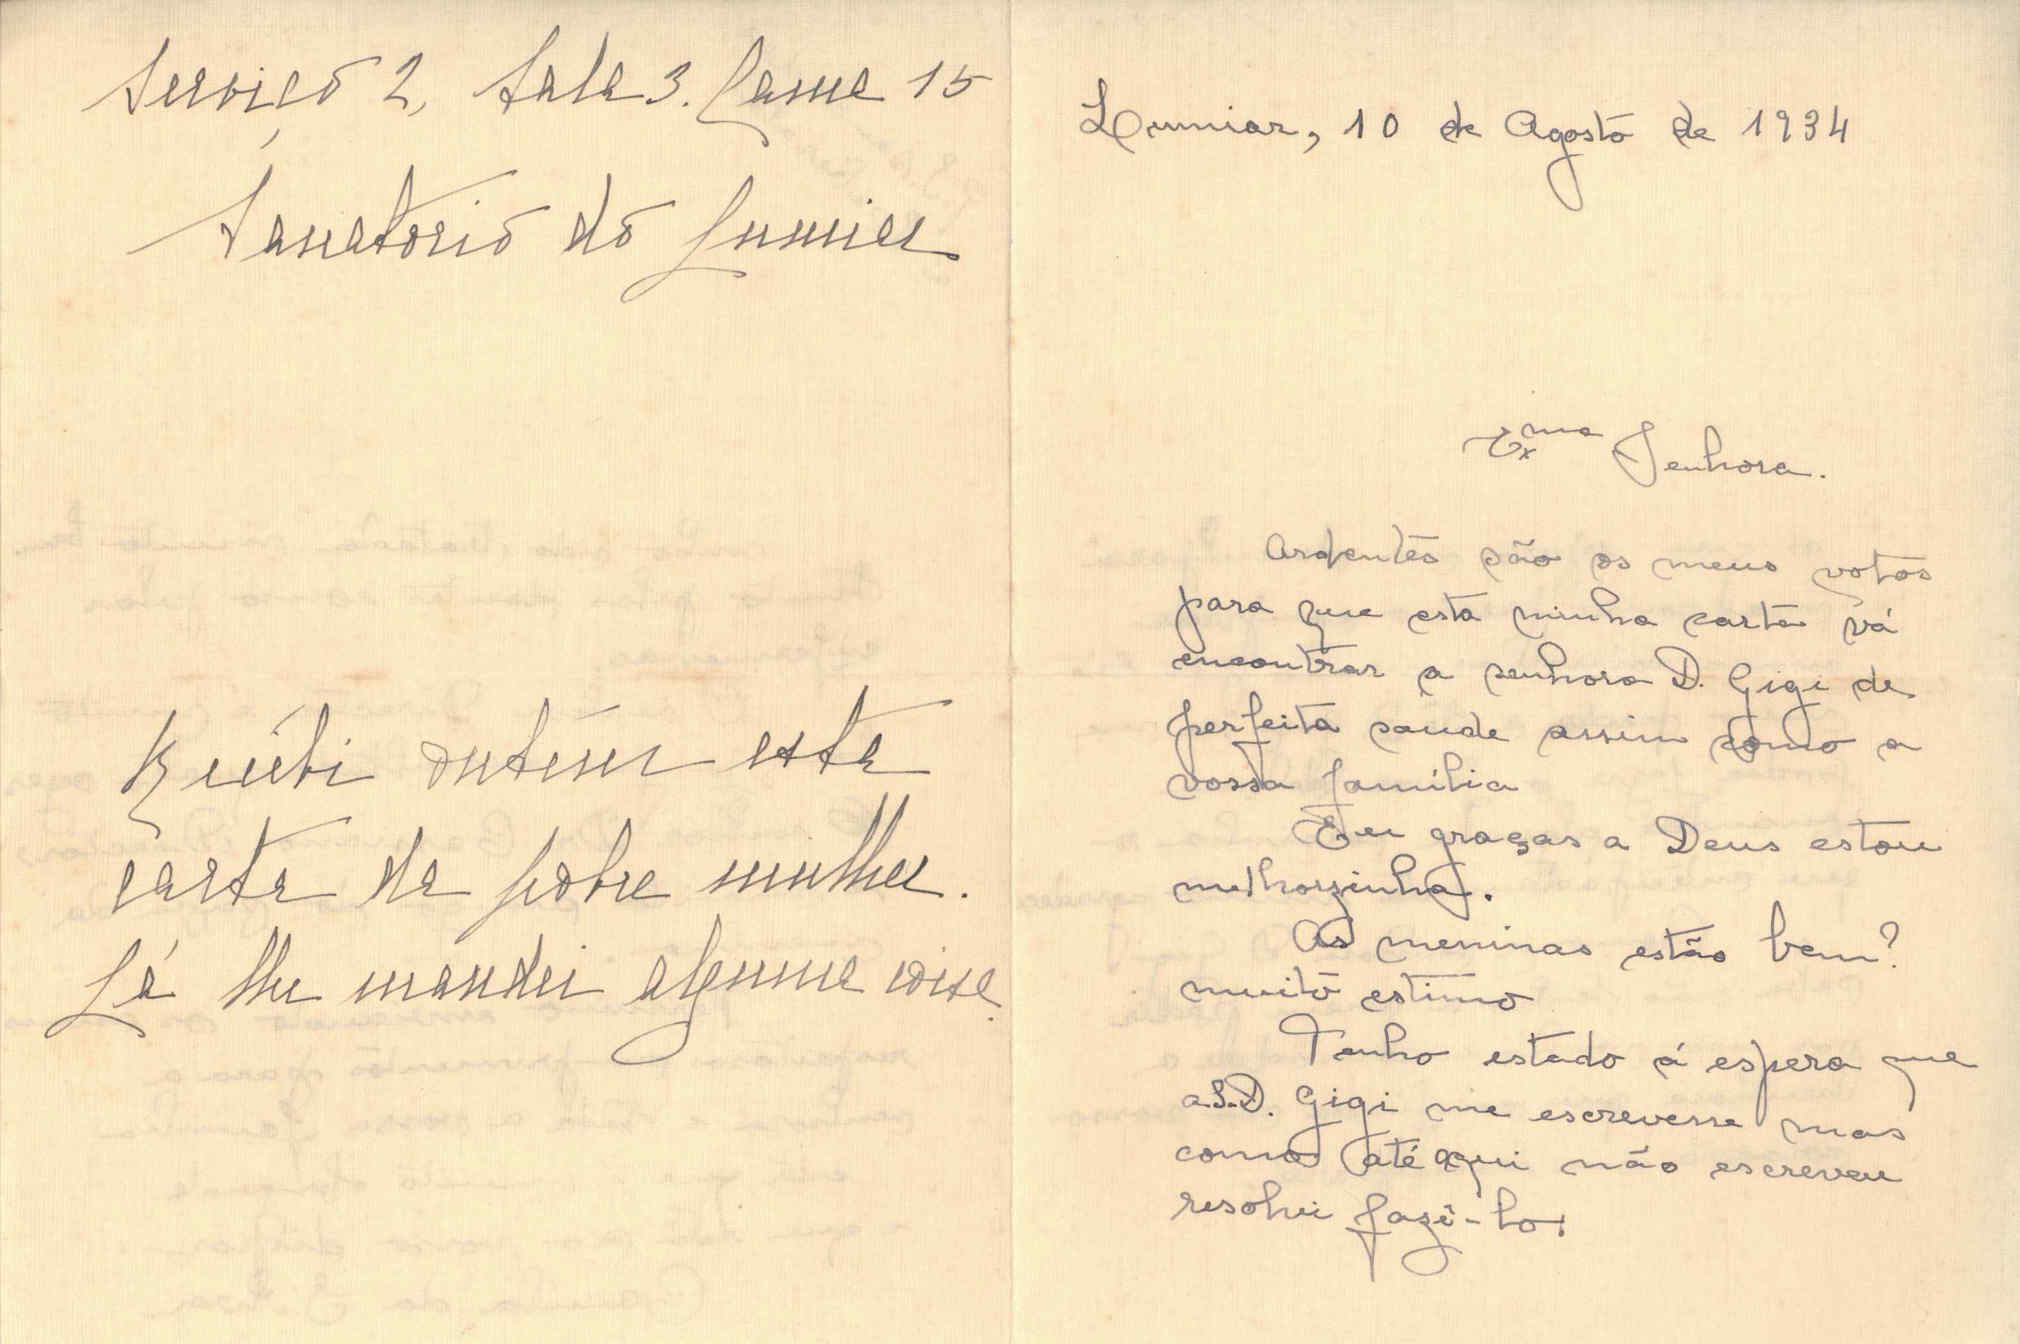 Serviço 2, Sala 3. Cama 15
Sanatorio do Lumiar
Recebi ontem esta
carta da pobre mulher.
Lá lhe mandei alguma coisa.
Lumiar, 10 de Agosto de 1934
Exma Senhora.
Ardentes são os meus votos
para que esta minha carta vá
encontrar a senhora D. Gigi de
perfeita saude assim como a
vossa família
Eu graças a Deus estou
melhorzinha.
As meninas estão bem?
muito estimo
Tenho estado á espera que
a S.D. Gigi me escrevesse mas
como até aqui não escreveu
resolvi fazê-lo.